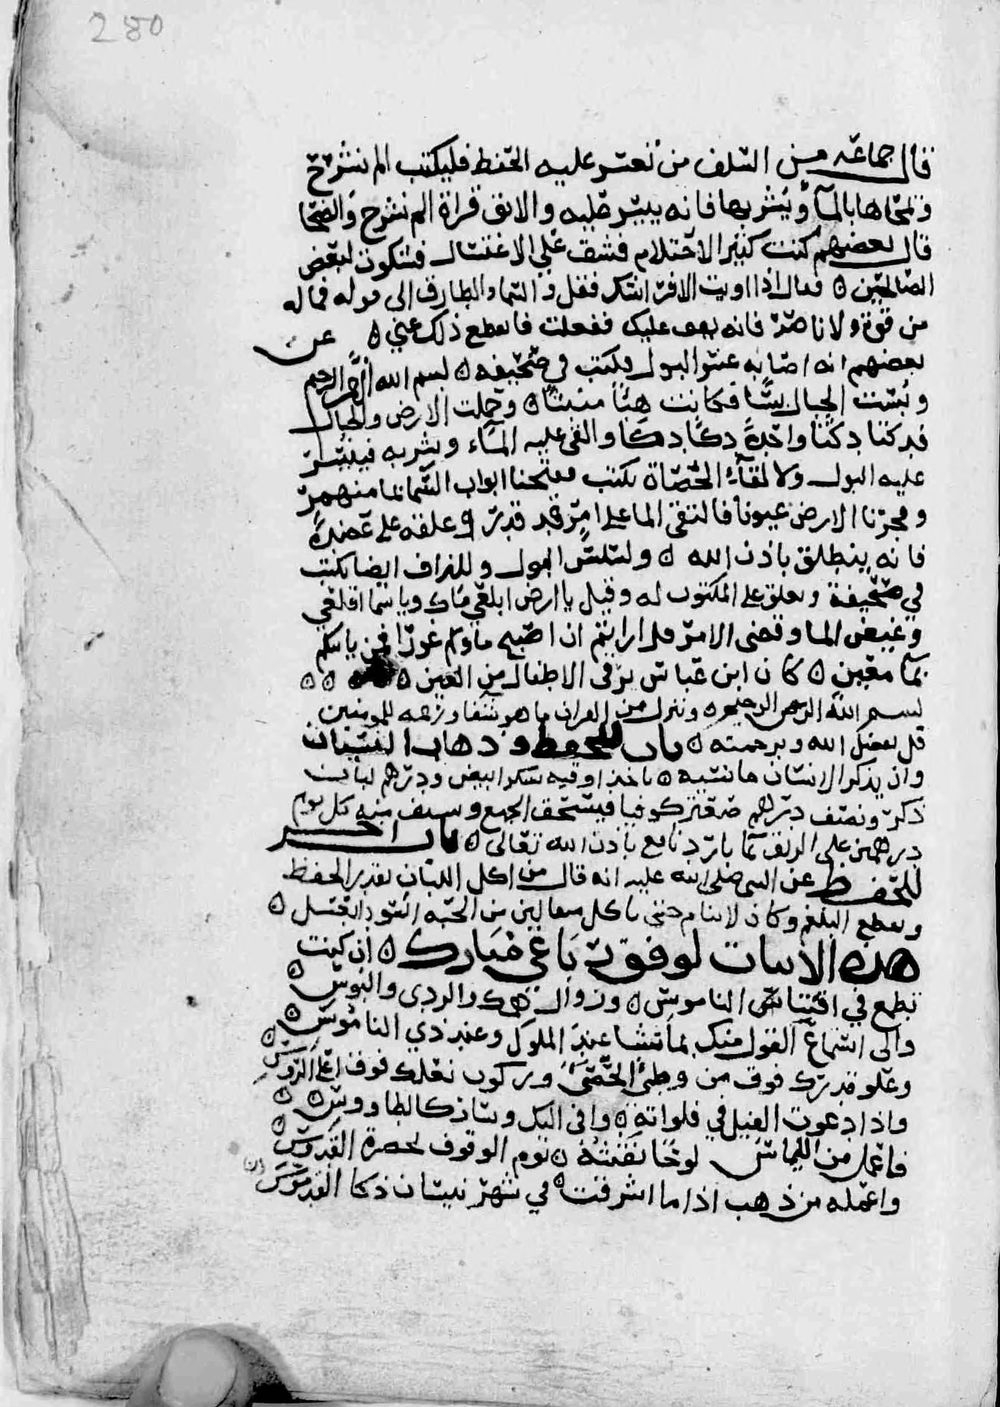 280
قال جماعة من السلف من تعسر عليه الحفظ فليكتب الم نشرح
ويمحاها بالمآ ويشربها فانه ييسر عليه والانق قراة الم نشرح والضحا
قال بعضهم كنت كثير الاحتلام فشق علي الاغتسال فشكوت لبعض
الصالحين ٥ فقال اذا اويت الا فراشك فقل والسما والطارق الى قوله فماله
من قوة ولا ناصر فانه يقف عليك ففعلت فانقطع ذلك عني ٥ عن
بعضهم انه اصابه عسر البول فكتب في صحيفه ٥ بسم الله الرحمن الرحيم
وبست الجبال بسًا فكانت هبًا منبثًا ٥ وحملت الارض والجبال
فدكتا دكتا واحدةً دكًا دكا والقي عليه المآء وشربه فيتيسر
عليه البول ولالقآء الحصاة يكتب ففتحنا ابواب السما بما منهمر
وفجرنا الارض عيونا فالتقى الما على امر قد قدر ٥ وعلقه على عضده
فانه ينطلق باذن الله ٥ ولسلس البول وللنزاف ايضا يكتب
في صحيفة ويعلق على المكتوب له وقيل يا ارض ابلعي ماك ويا سما اقلعي
وغيض الما وقضى الامر قل ارايتم ان اصبح ماوكم غورًا فمن ياتيكم
بمآ معين ٥ كان ابن عباس يرقى الاطفال من العين ٥ ٥ ٥
بسم الله الرحمن الرحيم ٥ وننزل من القران ما هو شفا ورحمه للمومنين
قل بفضل الله وبرحمته ٥ باب للحفظ وذهاب النسيان
وان يذكر الانسان ما نسيه ٥ ياخذ اوقيه سكر ابيض ودرهم لبان
ذكر ونصف درهم صعتر كوفيا فيسحق الجميع وسيف منه كل يوم
درهمين على الريق بما بارد نافع باذن الله تعالى ٥ باب اخر
للحفظ عن النبي صلى الله عليه انه قال من اكل اللبان بقدر الحفظ
ويقطع البلغم وكان لا ينام حتى ياكل مثقالين من الحبه السودا بعسل ٥
هذه الابيات لوفق باغي مبارك ٥ ان كنت
تطمع في اقتنا الناموس ٥ وزوال والردى والبوس ٥
والى استماع القول منك بما تشا عند الملوك وعند ذي الناموس ٥
وعلو قدرك فوق من وطئ الحصى وركوب نعلك فوق اعلا الروس ٥
واذا دعوت الفيل في فلواته ٥ وافى اليك وشانك كالطاووس ٥
فاعمل من اللماس لوحًا نقشه ٥ يوم الوقوف لحضرة القدوس ٥
واعمله من ذهب اذا ما اشرقت في شهر نيسان ذكا